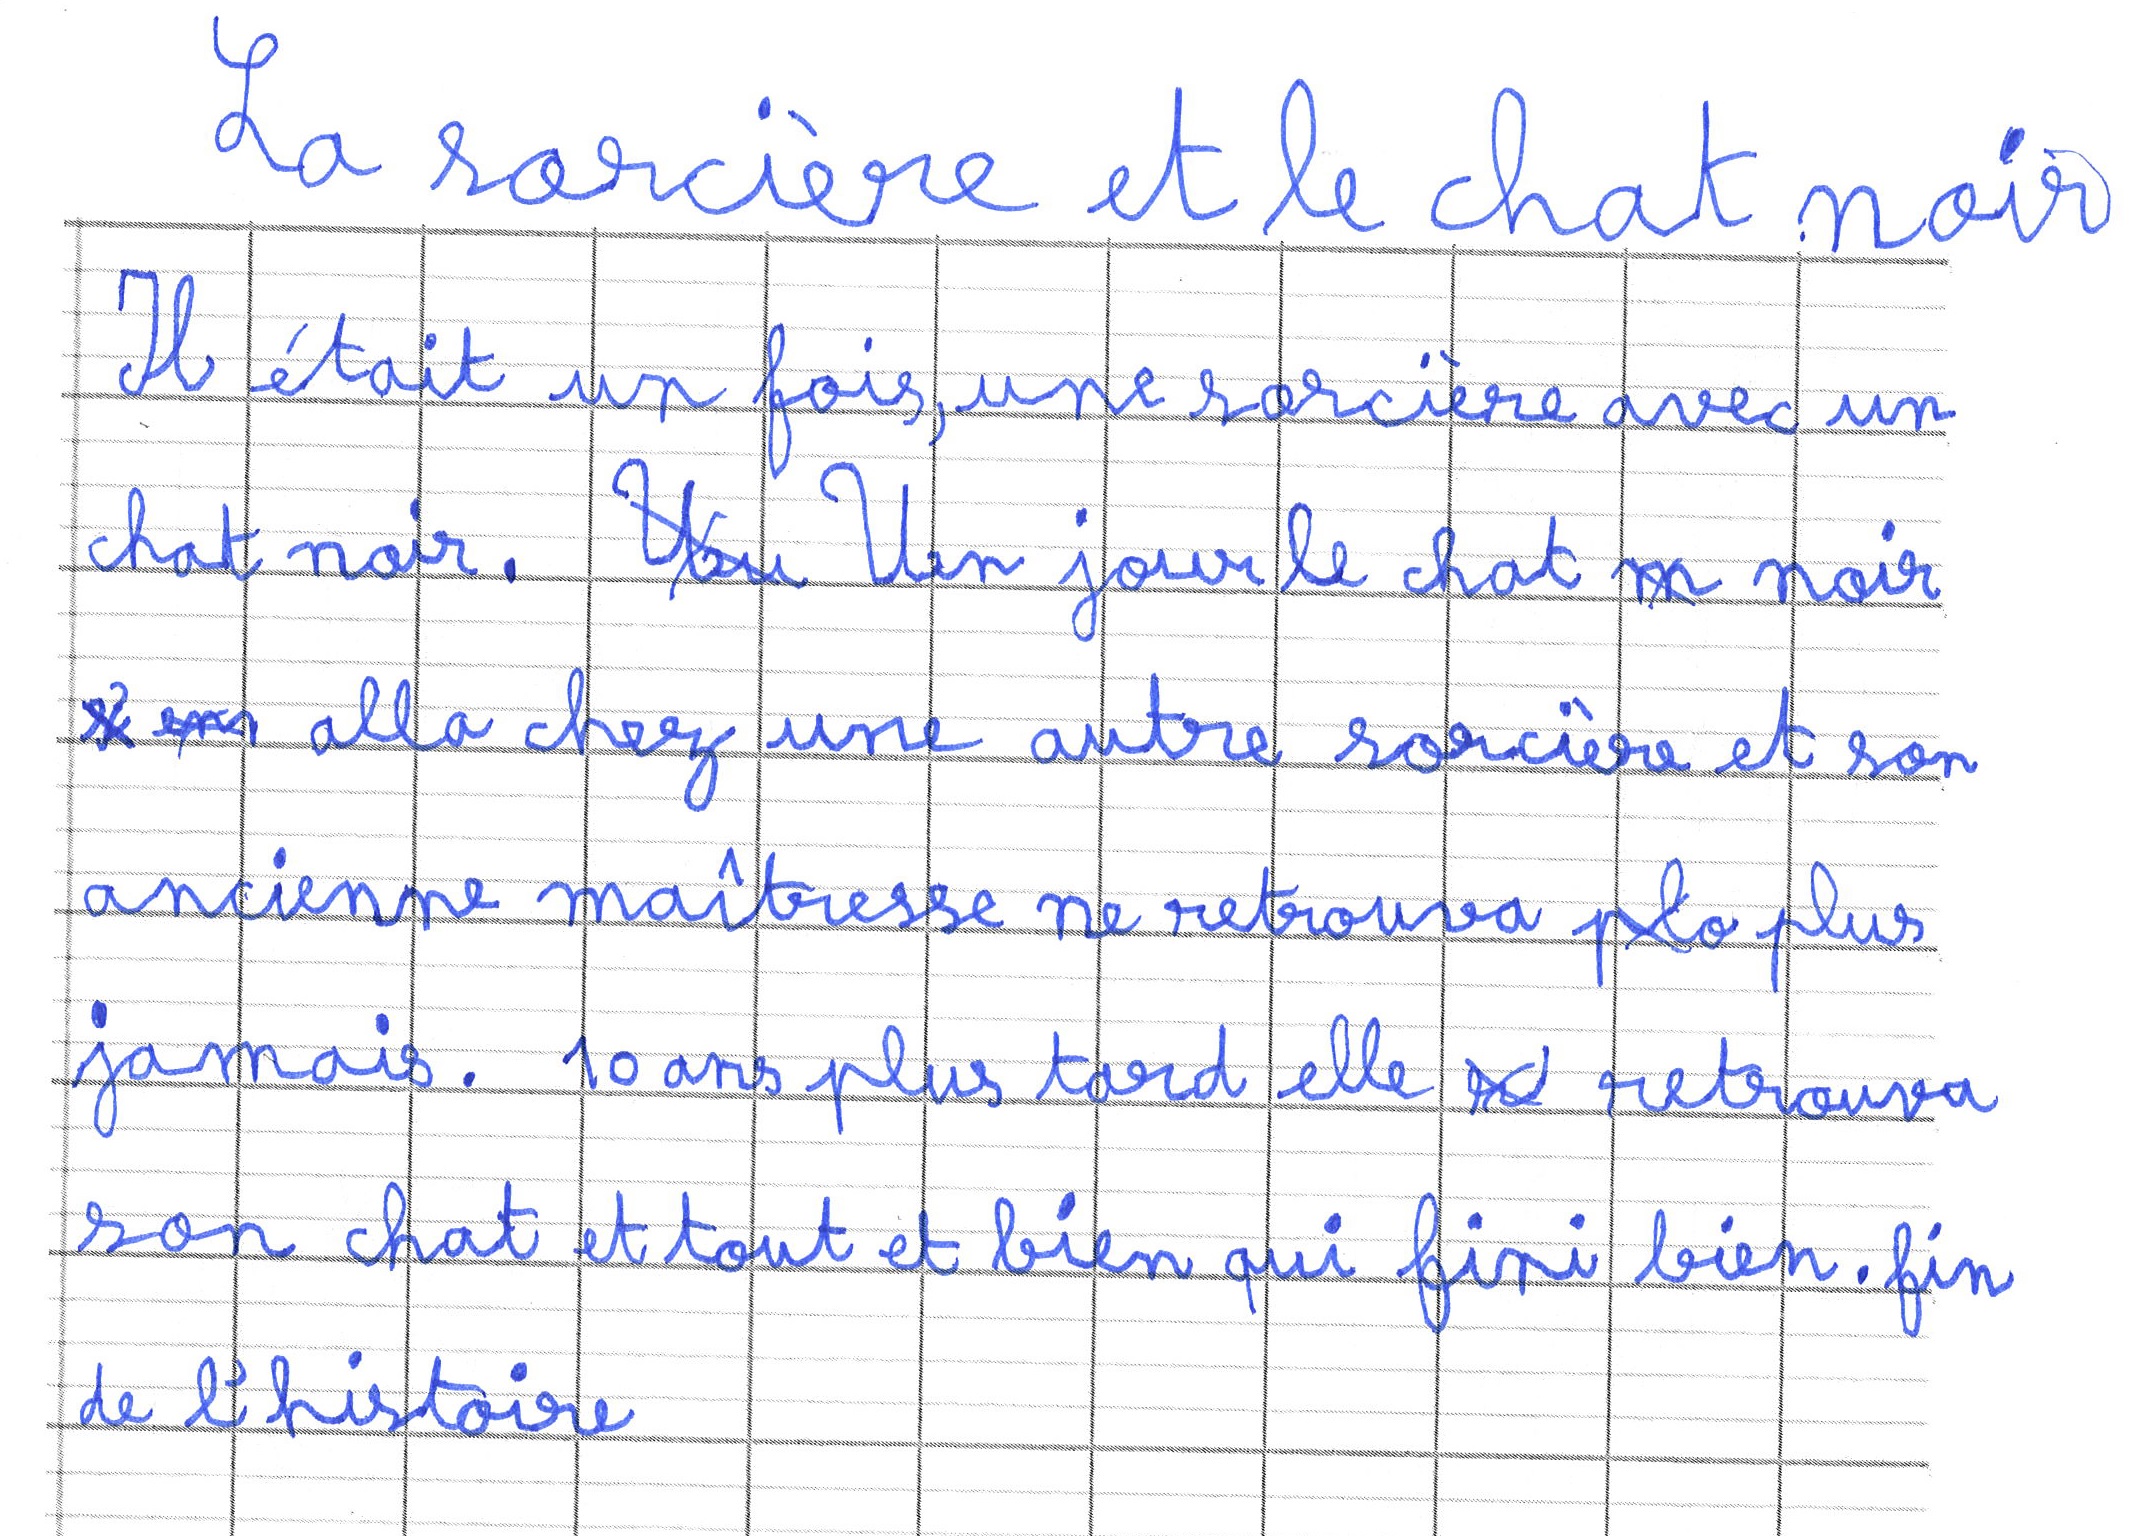 La sorcière et le chat noir
Il était un fois, une sorcière avec un
chat noir. Un jour le chat noir
alla chez une autre sorcière et son
ancienne maîtresse ne retrouva plus
jamais. 10 ans plus tard elle retrouva
son chat et tout et bien qui fini bien. fin
de l'histoire